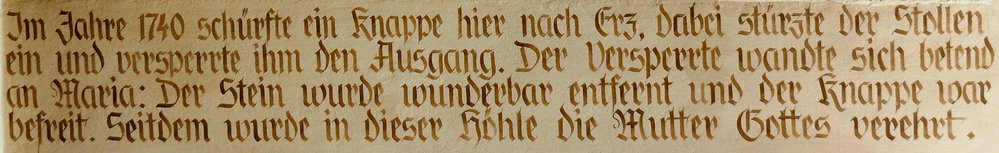 Im Jahre 1740 schürfte ein Knappe hier nach Erz, dabei stürzte der Stollen
ein und versperrte ihm den Ausgang. Der Versperrte wandte sich betend
an Maria: Der Stein wurde wunderbar entfernt und der Knappe war
befreit. Seitdem wurde in dieser Höhle die Mutter Gottes verehrt.